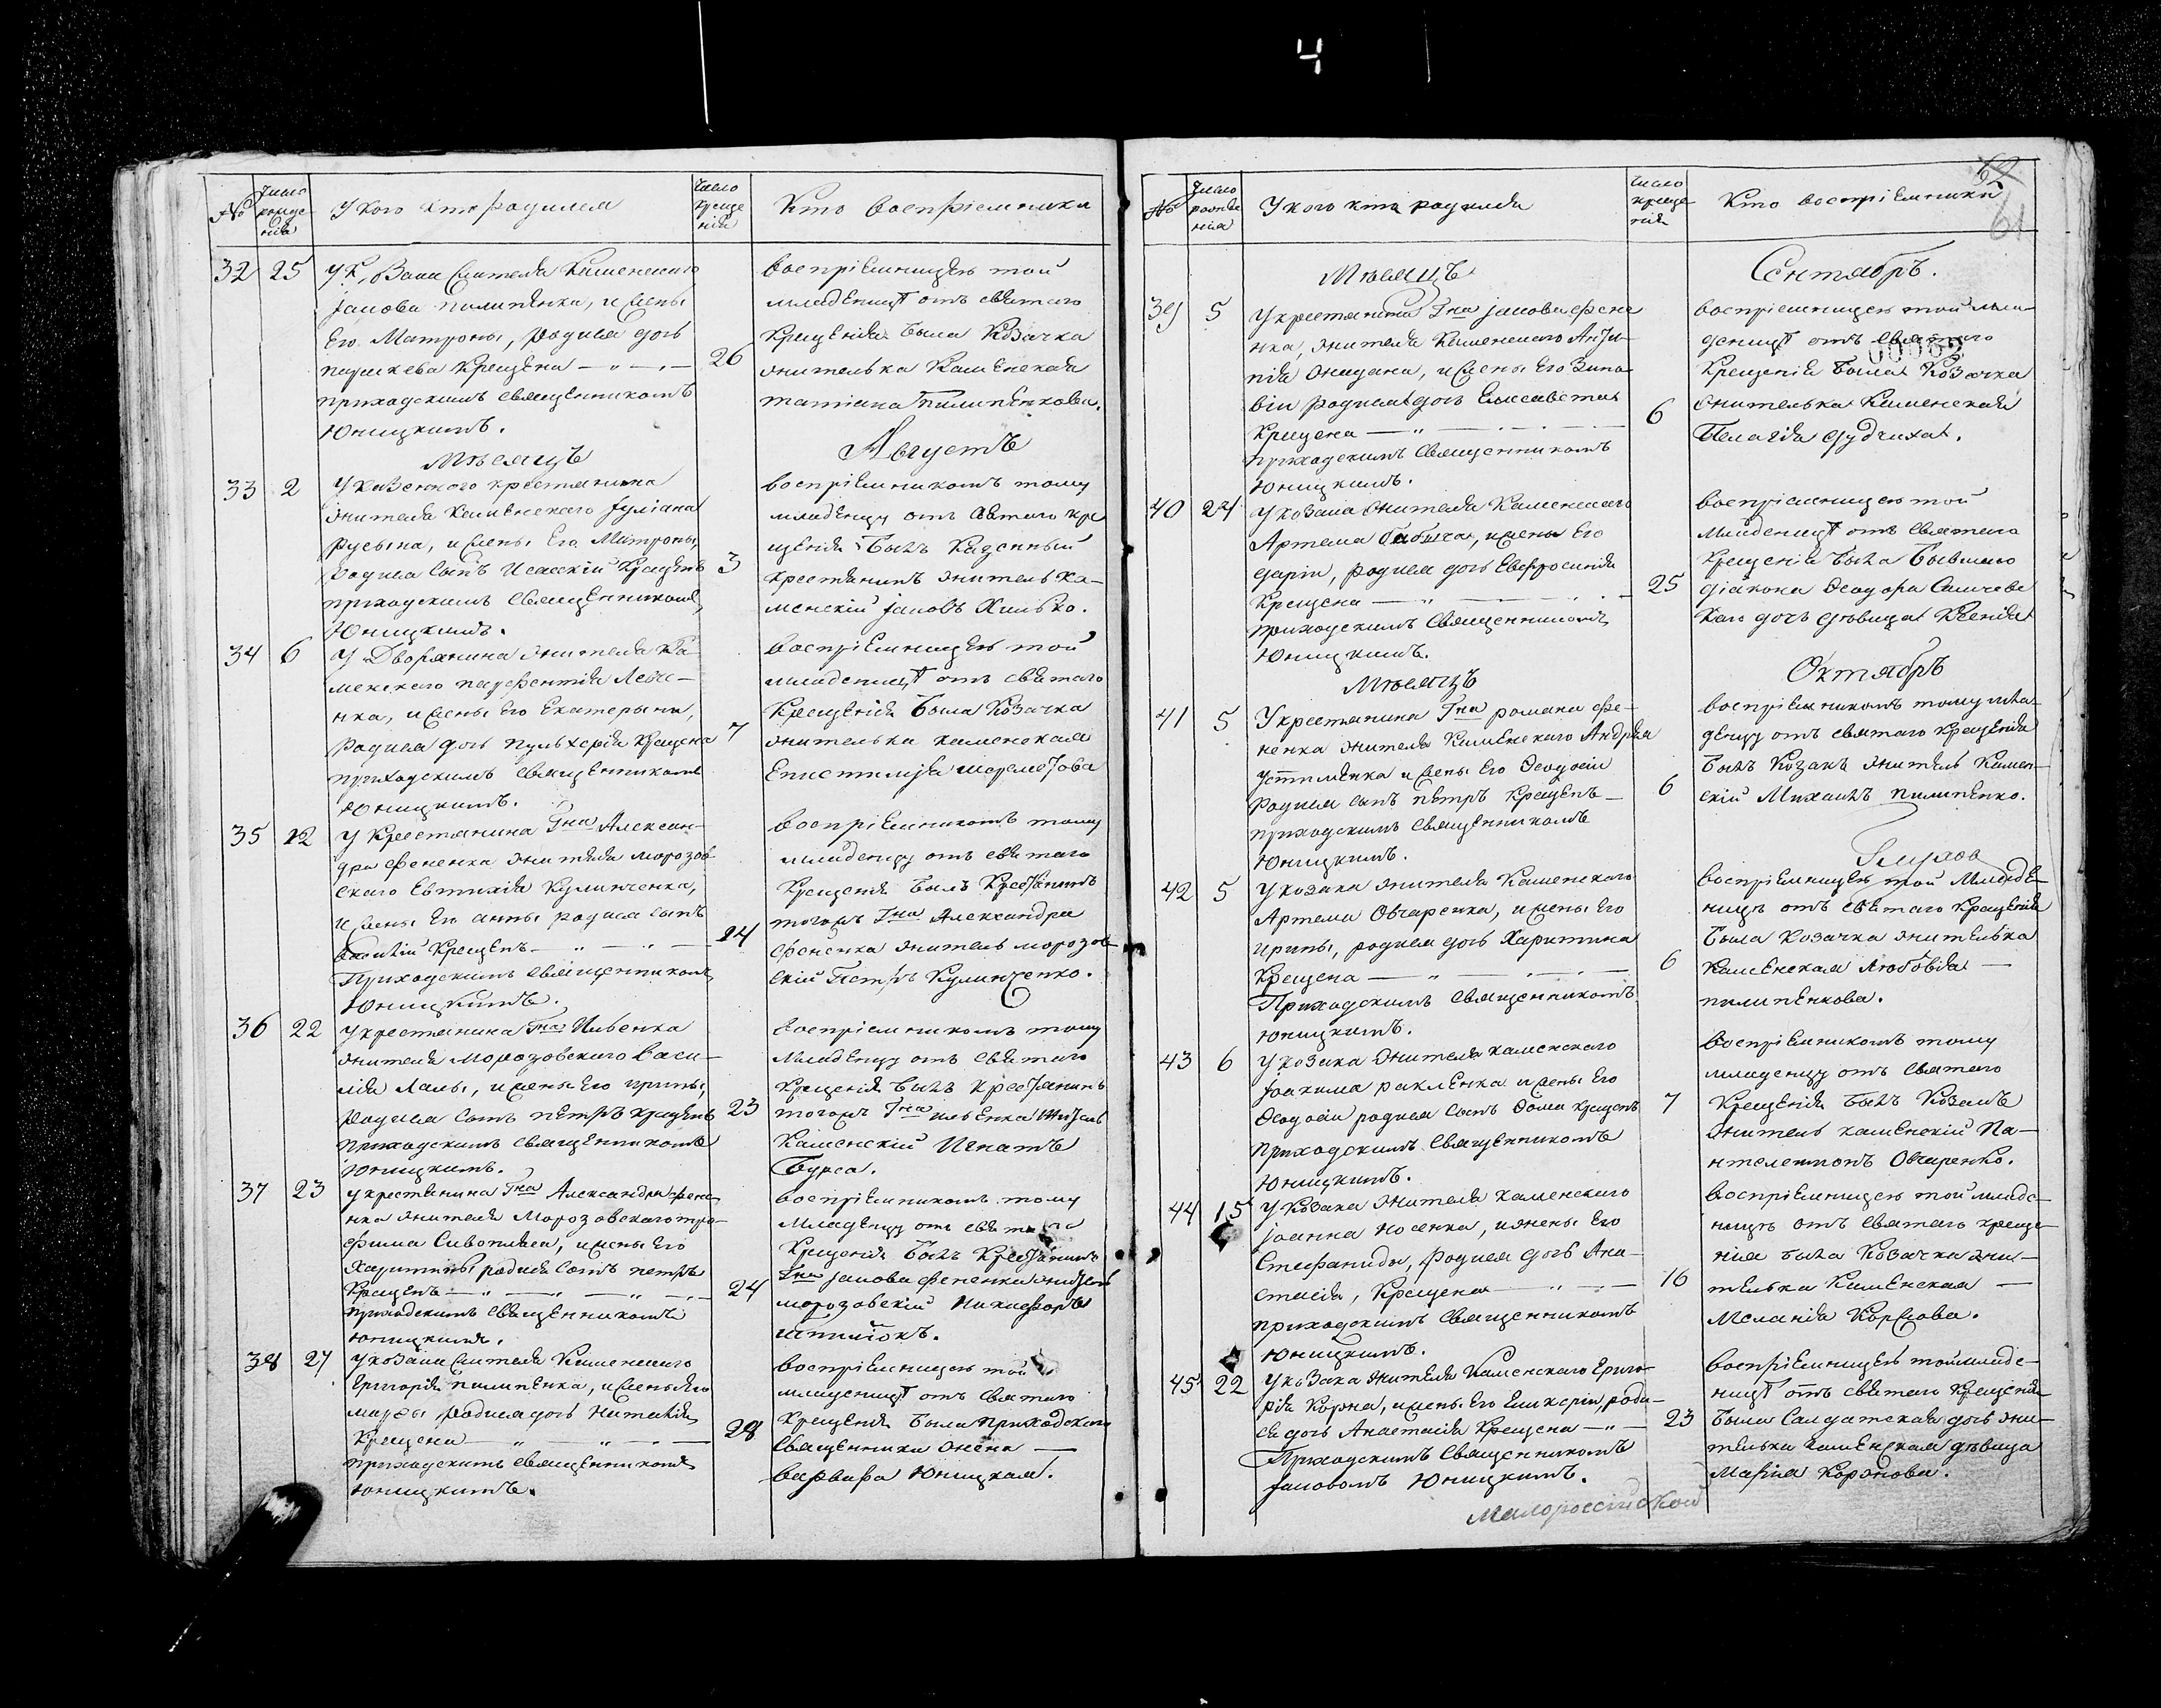 4
№
Число рожде-нія
У кого кто родился
Число креще нія
Кто воспріемники
32 25 У К. Зака жителя Каменского
Іакова пилипенка, и жены
Его Матроны, Родися дочь
параскева Крещена 26
приходскимъ священникомъ
Юницкимъ.
воспріемницею той
младеницѣ отъ святаго
Крещенія была Козачка
жителька Каменская
татіана Пилипенкова.
Мѣсяцъ Августъ
33 2 У Казенного крестянина
жителя Каменского Іуліана
Русина, и жены Его Матроны,
Родися Сынъ Крещенъ 3
приходскимъ священникомъ
Юницкимъ.
воспріемникомъ тому
младенцу отъ святого кре
щенія былъ Казенный
крестянинъ житель Ка-
менскій Іаковъ Хилько.
34 6 У Дворянина жителя Ка-
менского парфентія Левче-
нка, и жены Его Екатерины,
Родися дочь пульхерія Крещена 7
приходскимъ священникомъ
Юницкимъ.
воспріемницею той
младеницѣ отъ святаго
Крещенія была Козачка
жителька каменская
Епистимія
35 12 У Крестянина Гна Алексан-
дра Фененка жителя морозов
ского Евтихія Кулинченка,
и жены Его анны родися сынъ
Василій Крещенъ 14
Приходскимъ священникомъ
Юницкимъ.
воспріемникомъ тому
младенцу отъ святаго
Крещенія былъ Крестянинъ
тогожъ Гна Александра
Фененка житель морозов
скій Петръ Кулинченко.
36 22 У крестянина Гна Ильенка
жителя Морозовского Васи-
лія Лапы, и жены Его ирины,
Родися сынъ петръ Крещенъ 23
приходскимъ священникомъ
Юницкимъ.
воспріемникомъ тому
младенцу отъ святаго
Крещенія былъ Крестянинъ
тогожъ Гна ильенка житель
Каменскій Игнатъ
Бурса.
37 23 У крестянина Гна Александра фене
нка жителя Морозовского тро-
фима и жены Его
Харитины родися Сынъ петръ
Крещенъ 24
приходскимъ священникомъ
юницкимъ.
воспріемникомъ тому
Младенцу отъ святаго
Крещенія былъ Крестянинъ
Гна Іакова Фененка житель
морозовскій Никифоръ
38 27 У козака жителя Каменского
Григорія пилипенка, и жены Его
марѳы родися дочь Наталія
Крещена 28
приходскимъ священникомъ
юницкимъ.
воспріемницею той
младеницѣ отъ святаго
Крещенія была приходского
священника жена
варвара Юницкая.
62
61
00062
№
Число рожде нія
У кого кто родился
Число креще нія
Кто воспріемники
Мѣсяцъ Сентябрь.
39 5 У крестянина Гна Іакова Фене
нка, жителя Каменского Анти-
пія и жены Его Зино-
віи родися дочь Елисавета
Крещена 6
приходскимъ священникомъ
Юницкимъ.
воспріемницею той мла-
деницѣ отъ святаго
Крещенія была Козачка
жителька Каменская
Пелагія
40 24 У козака жителя Каменского
Артема и жены Его
Даріи, родися дочь Евфросинія
Крещена 25
приходскимъ священникомъ
Юницкимъ.
воспріемницею той
младеницѣ отъ святаго
Крещенія была бывшаго
діакона Ѳеодора
дочь дѣвица Ксенія
Мѣсяцъ Октябрь
41 5 У крестянина Гна романа фе-
ненка жителя Каменского Андрея
Устименка и жены Его Ѳеодосіи
родися сынъ петръ Крещенъ 6
приходскимъ священникомъ
Юницкимъ.
воспріемникомъ тому мла-
денцу отъ святаго крещенія
былъ Козакъ житель Камен-
скій Михаилъ пилипенко.
42 5 У козака жителя Каменского
Артема Овчаренка, и жены Его
ирины, родися дочь Харитина
Крещена 6
Приходскимъ священникомъ
юницкимъ.
воспріемницею той Младе
ницѣ отъ святаго крещенія
была козачка жителька
Каменская Любовія
пилипенкова.
43 6 У козака жителя каменского
Іоакима и жены Его
Ѳеодосіи родися сынъ Ѳома крещенъ 7
приходскимъ священникомъ
Юницкимъ.
воспріемникомъ тому
младенцу отъ святаго
Крещенія былъ Козакъ
житель каменскій Па-
нтелеимонъ Овчаренко.
44 15 У козака жителя каменского
Іоанна Носенка, и жены Его
Стефаниды, родися дочь Ана-
стасія, Крещена 16
приходскимъ священникомъ
Юницкимъ.
воспріемницею той младе-
ницѣ отъ святаго креще-
нія была Козачка жи-
телька Каменская
Меланія Коржова.
45 22 У козака жителя Каменского Григо-
рія Коржа, и жены Его Гликеріи, роди-
ся дочь Анастасія Крещена 23
Приходскимъ священникомъ
Іаковомъ Юницкимъ.
воспріемницею той младе-
ницѣ отъ святаго крещенія
была Салдатская дочь жи-
телька каменская дѣвица
Марія Коржова.
Малороссійской